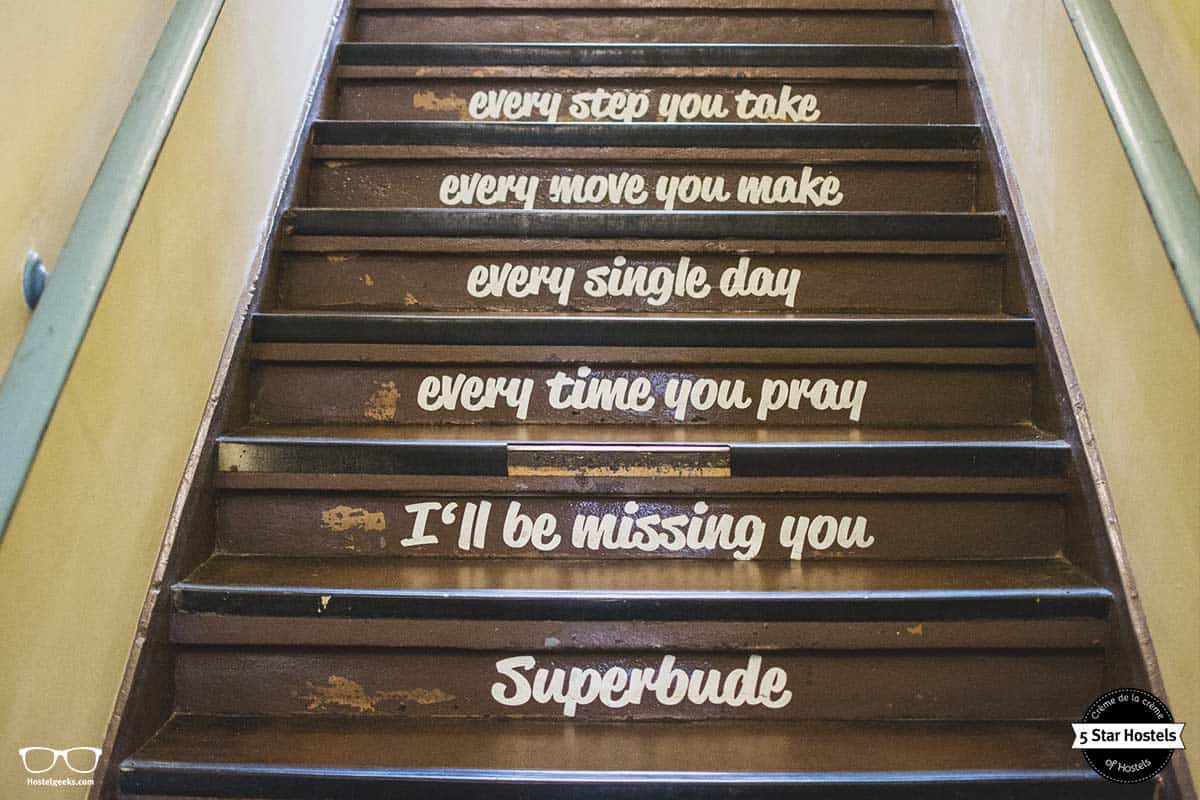 every step you take
every move you make
every single day
every time you pray
I‘ll be missing you
Superbude
Hostelgeeks.com
Crème de la crème
5 Star Hostels
of Hostels